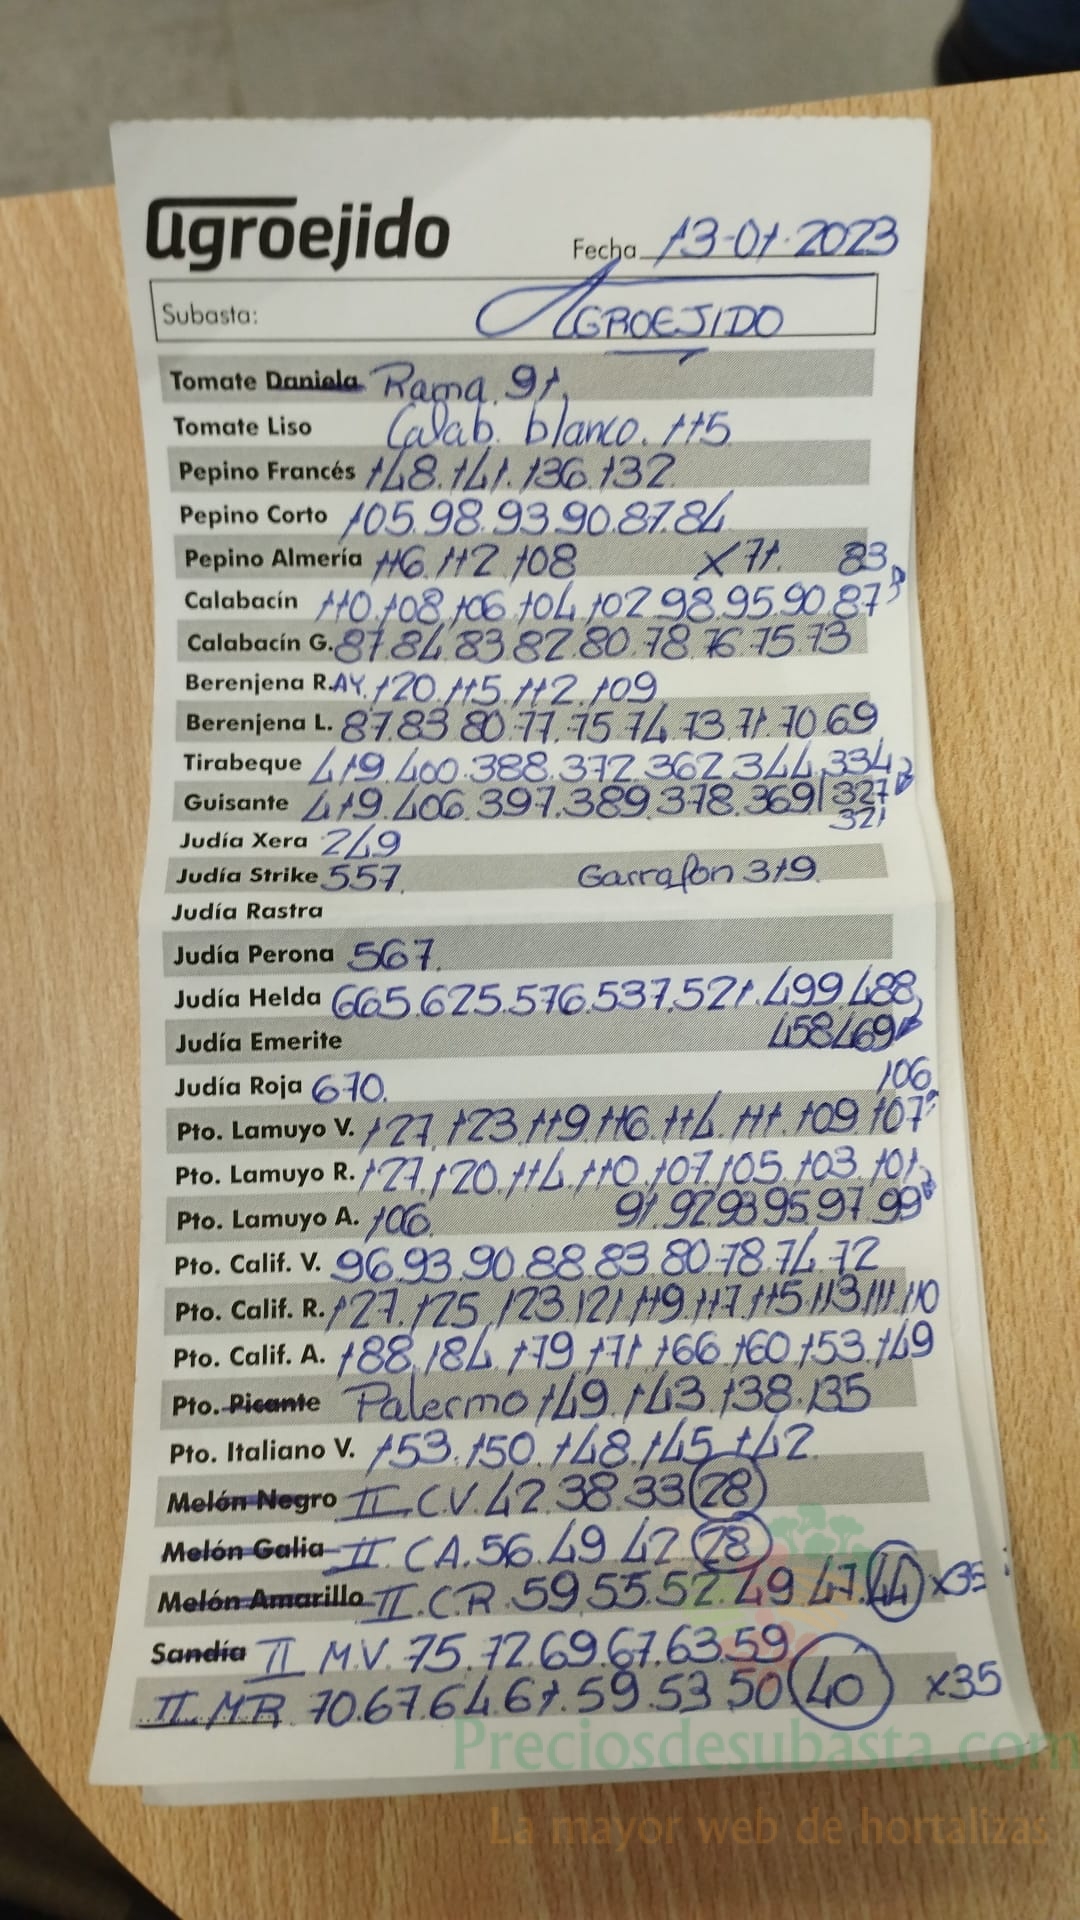 agroejido
Fecha 13-01-2023
Subasta: AGROEJIDO
Tomate Daniela Rama. 91.
Tomate Liso Calab. blanco. 115
Pepino Francés 148.141.136.132
Pepino Corto 105.98.93.90.87.84
Pepino Almería 116.112.108 x 71. 83
Calabacín 110.108.106.104.102.98.95.90.87
Calabacín G. 87.84.83.82.80.78.76.75.73
Berenjena R.AY. 120.115.112.109
Berenjena L. 87.83.80.77.75.74.73.71.70.69
Tirabeque 419.400.388.372.362.344.334
Guisante 419.406.397.389.378.369 | 327
321
Judía Xera 249
Judía Strike 557. Garrafon 319.
Judía Rastra
Judía Perona 567.
Judía Helda 665.625.576.537.521.499.488
Judía Emerite 458.469
Judía Roja 670. 106
Pto. Lamuyo V. 127.123.119.116.114.111.109.107
Pto. Lamuyo R. 127.120.114.110.107.105.103.101
Pto. Lamuyo A. 106. 91.92.93.95.97.99
Pto. Calif. V. 96.93.90.88.83.80.78.74.72
Pto. Calif. R. 127.125.123.121.119.117.115.113.111.110
Pto. Calif. A. 188.184.179.171.166.160.153.149
Pto. Picante Palermo 149.143.138.135
Pto. Italiano V. 153.150.148.145.142.
Melón Negro II C.V. 42.38.33 28
Melón Galia II. CA. 56.49 42 28
Melón Amarillo II.C.R. 59.55.52.49 47.44 x35
Sandía II M.V. 75.72.69.67.63.59
II MR 70.67.64.61.59.53 50 40 x35
Preciosdesubasta.com
La mayor web de hortalizas